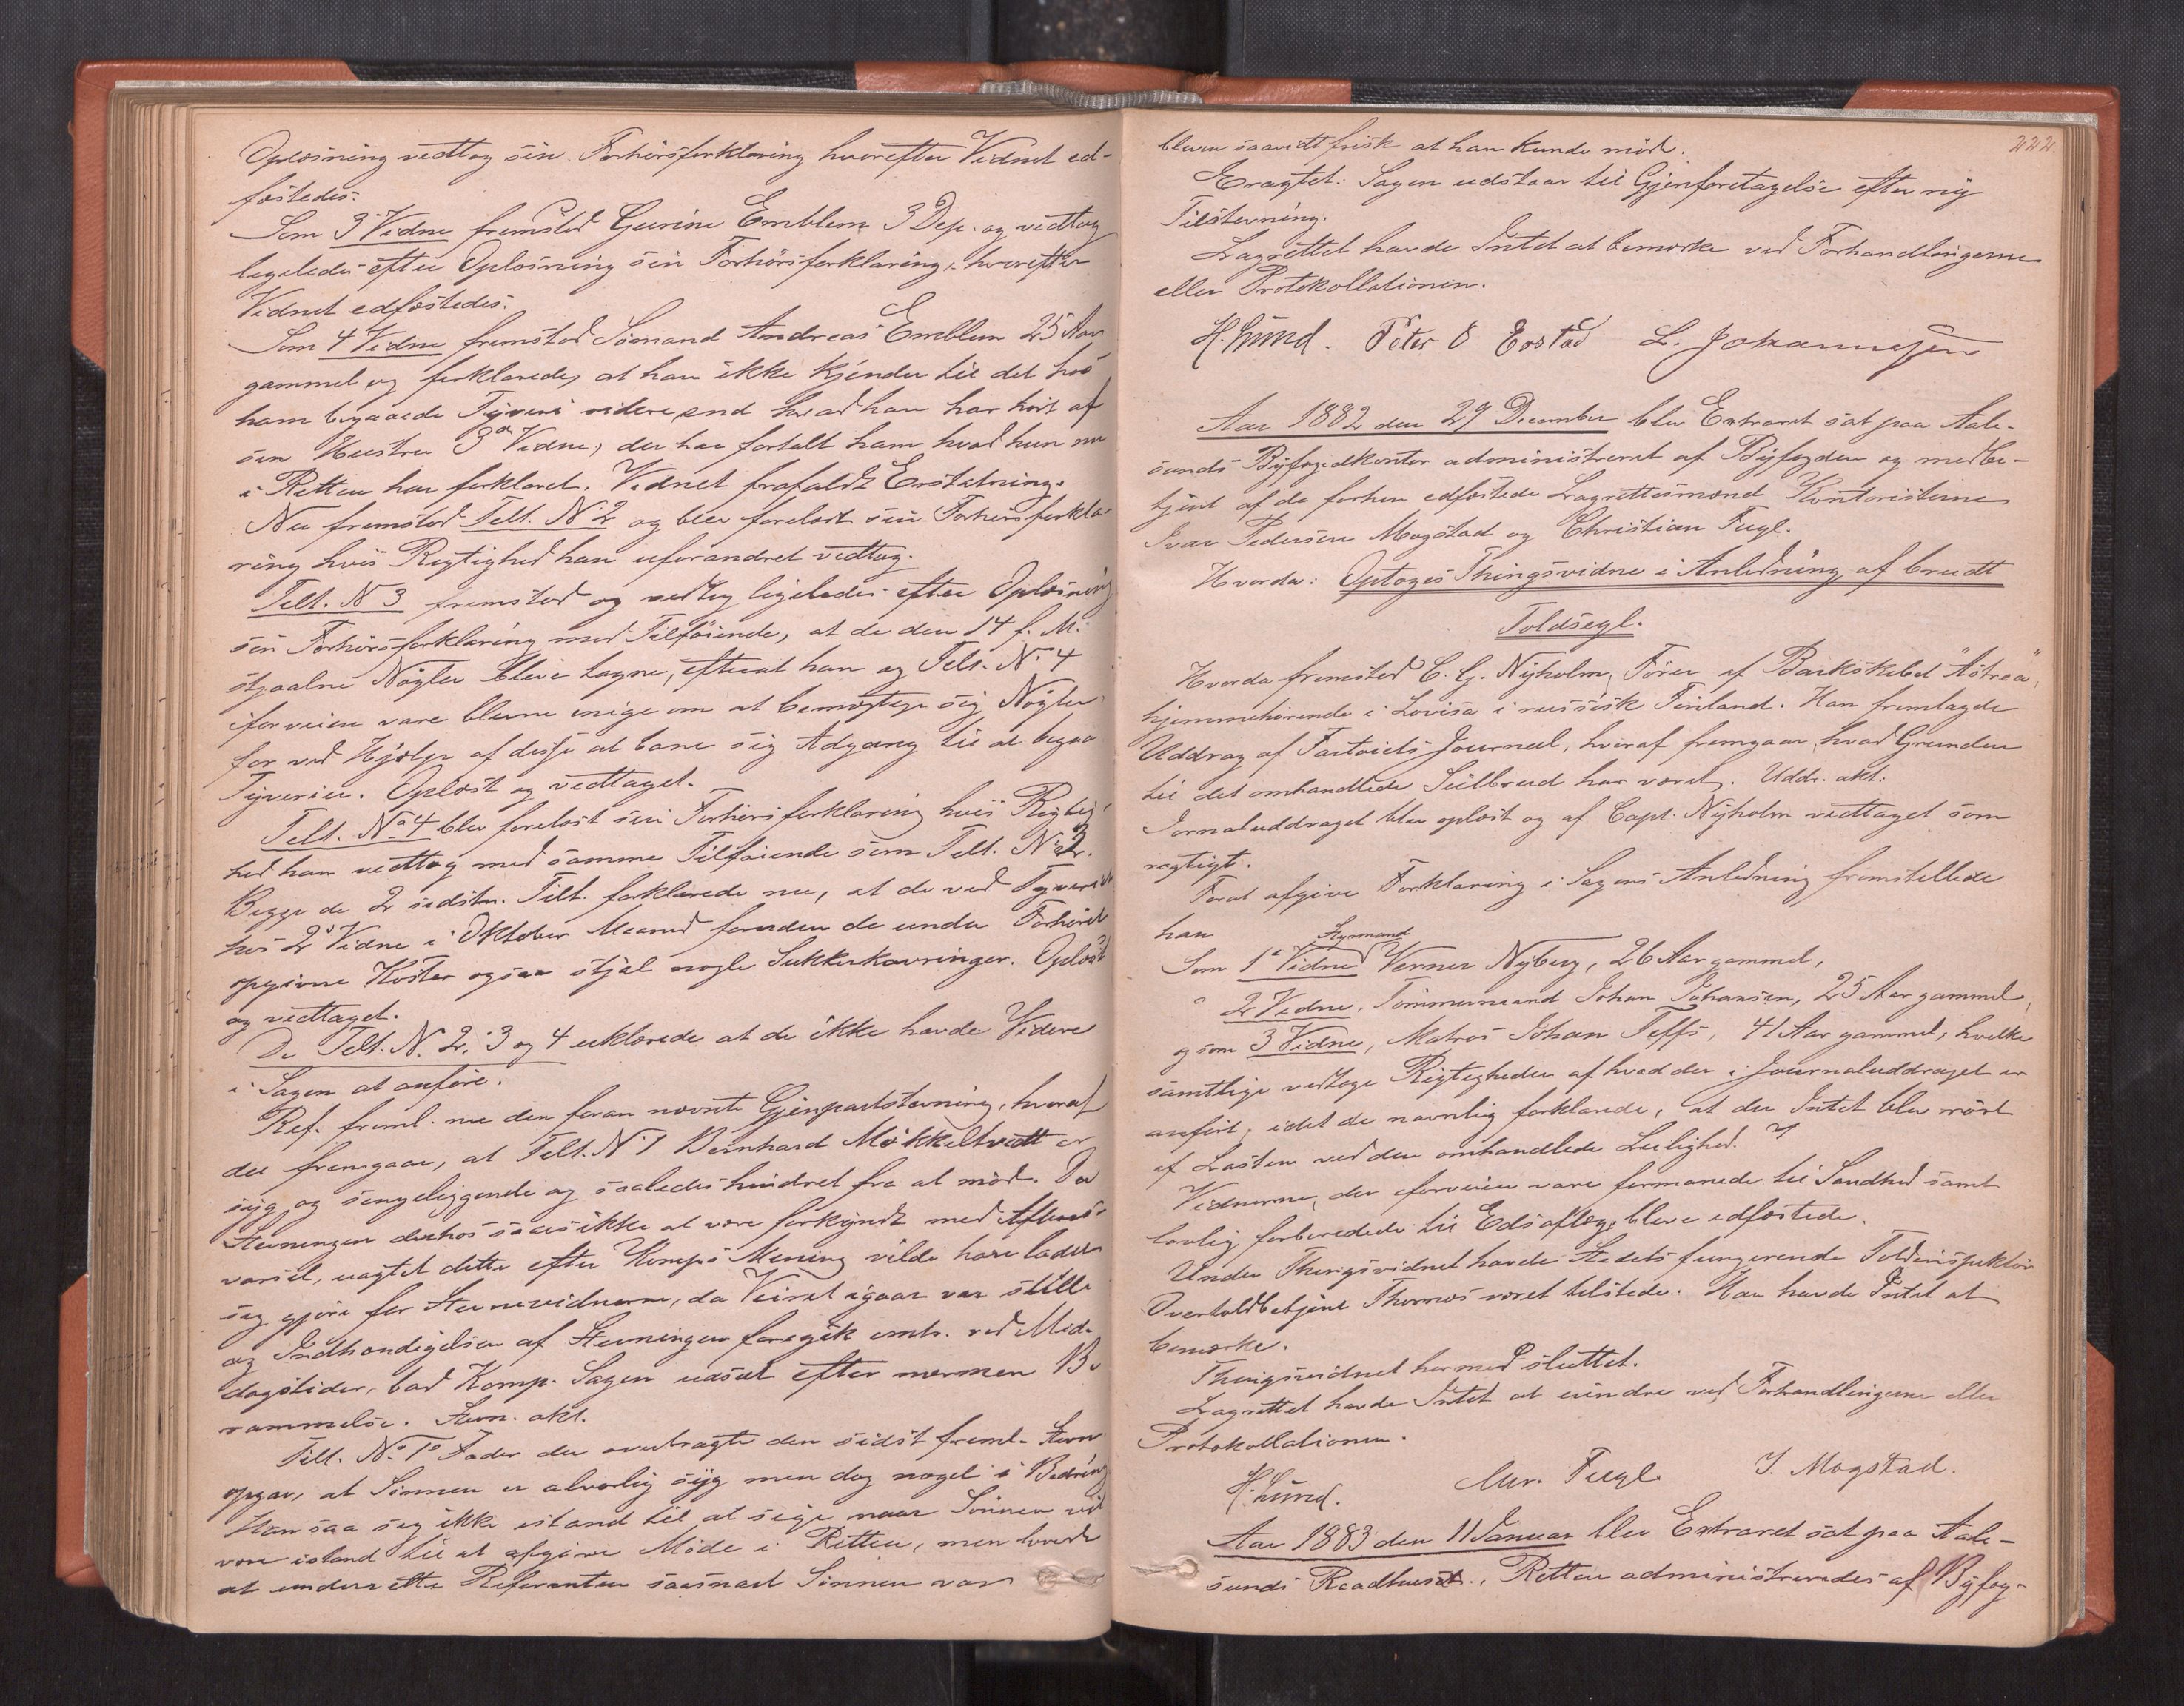 Oplæsning vedtog sin Forhørsforklaring hvorefter Vidnet ed-
fæstedes.
Som 3 Vidne fremstod Gurine Emblem 3 Dep. og vedtog
ligeledes efter Oplæsning sin Forhørsforklaring, hvorefter
Vidnet edfæstedes.
Som 4 Vidne fremstod Sømand Andreas Emblem 25 Aar
gammel og forklarede, at han ikke kjender til det hos
ham begaaede Tyveri videre end hvad han har hørt af
sin Hustru 3die Vidne, der har fortalt ham hvad hun nu
i Retten har forklaret. Vidnet frafaldt Erstatning.
Nu fremstod Telt. No 2 og blev forelæst sin Forhørsforkla-
ring hvis Rigtighed han uforandret vedtog.
Tilt. N 3 fremstod og vedtog ligeledes efter Oplæsning
sin Forhørsforklaring med Tilføiende, at de den 14 f. M.
stjaalne Nøgler bleve tagne, efterat han og Telt. No 4
iforveien vare blevne enige om at bemægtige sig Nøgler
for ved Hjælp af disse at bane sig Adgang til at begaa
Tyverier. Oplæst og vedtaget.
Telt. No 4 blev forelæst sin Forhørsforklaring hvis Rigtig-
hed han vedtog med samme Tilføiende som Telt. No 3.
Begge de 2 sidstn. Tilt. forklarede nu, at de ved Tyveriet
hos 2 Vidne i Oktober Maaned foruden de under Forhøret
opgivne Koster ogsaa stjal nogle Sukkerkavringer. Oplæst
og vedtaget.
De Telt. N. 2, 3 og 4 erklærede at de ikke havde Videre
i Sagen at anføre.
Ref. freml. nu den foran nævnte Gjenpartstævning, hvoraf
det fremgaar, at Telt. No 1 Bernhard Møkkeltvedt er
syg og sengeliggende og saaledes hindret fra at møde. Da
Stevningen derhos saaes ikke at være forkyndt med Aftens-
varsel, uagtet dette efter Komps Mening vilde have ladet
sig gjøre for Stevnevidnerne, da Veiret igaar var stille
og Indhændigelsen af Stevningen foregik omtr. ved Mid-
dagstider, bad Komp. Sagen udsat efter nærmere Be-
rammelse. Stevn. akt.
Tilt. No 1s Fader der overbragte den sidst freml. Stevn.
opgav, at Sønnen er alvorlig syg men dog noget i Bedring
Han saa sig ikke istand til at sige naar Sønnen vil
være istand til at afgive Møde i Retten, men lovede
at underrette Referenten saasnart Sønnen var
222
bleven saavidt frisk at han kunde møde.
Eragtet: Sagen udstaar til Gjenforetagelse efter ny
Tilstevning.
Lagrettet havde Intet at bemærke ved Forhandlingerne
eller Protokollationen.
H. Lund. Peter O Eostad L. Johannesen
Aar 1882 den 29 December blev Extraret sat paa Aale-
sunds Byfogedkontor administreret af Byfogden og medbe-
tjent af de forhen edfæstede Lagrettesmænd Kontoristerne
Ivar Pedersen Mogstad og Christian Fugl.
Hvorda: Optoges Thingsvidne i Anledning af brudt
Toldsegl.
Hvorda fremstod C. G. Nyholm, Fører af Barkskibet "Astræa",
hjemmehørende i Lovisa i russisk Finland. Han fremlagde
Uddrag af Fartøiets Journal, hvoraf fremgaar, hvad Grunden
til det omhandlede Seilbrud har været. Uddr. akt.
Jornaluddraget blev oplæst og af Capt. Nyholm vedtaget som
rigtigt.
Forat afgive Forklaring i Sagens Anledning fremstillede
han
Styrmand
Som 1ste Vidne Verner Nyberg, 26 Aar gammel,
" 2 Vidne, Tømmermand Johan Johansen, 25 Aar gammel,
og som 3 Vidne, Matros Johan Teffs, 41 Aar gammel, hvilke
samtlige vedtoge Rigtigheden af hvad der i Journaluddraget er
anført, idet de navnlig forklarede, at der Intet blev rørt
af Lasten ved den omhandlede Leilighed.
Vidnerne, der iforveien vare formanede til Sandhed samt
lovlig forberedede til Edsaflæg, bleve edfæstede.
Under Thingsvidnet havde Stedets fungerende Toldinspektør
Overtoldbetjent Thornæs været tilstede. Han havde Intet at
bemærke.
Thingsvidnet hermed sluttet.
Lagrettet havde Intet at erindre ved Forhandlingerne eller
Protokollationen.
H. Lund. Chr. Fugl. I. Mogstad.
Aar 1883 den 11 Januar blev Extraret sat paa Aale-
sunds Raadhus. Retten administreredes af Byfog-